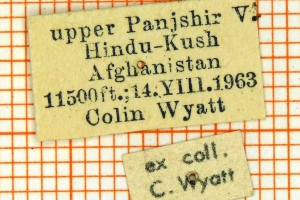 upper Panjshir V.
Hindu-Kush
Afghanistan
11500ft.;14.VIII.1963
Colin Wyatt
ex coll.
C. Wyatt